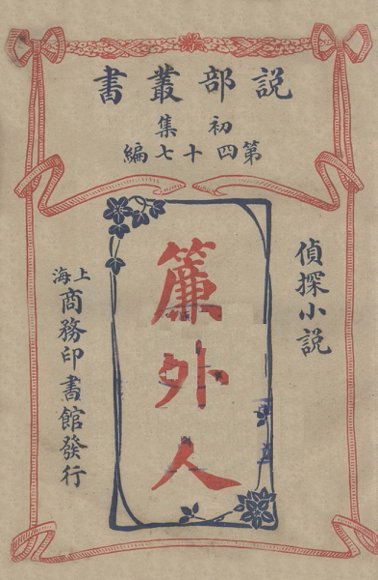 說部叢書
初集
第四十七編
偵探小説
簾外人
上海
商務印書館發行